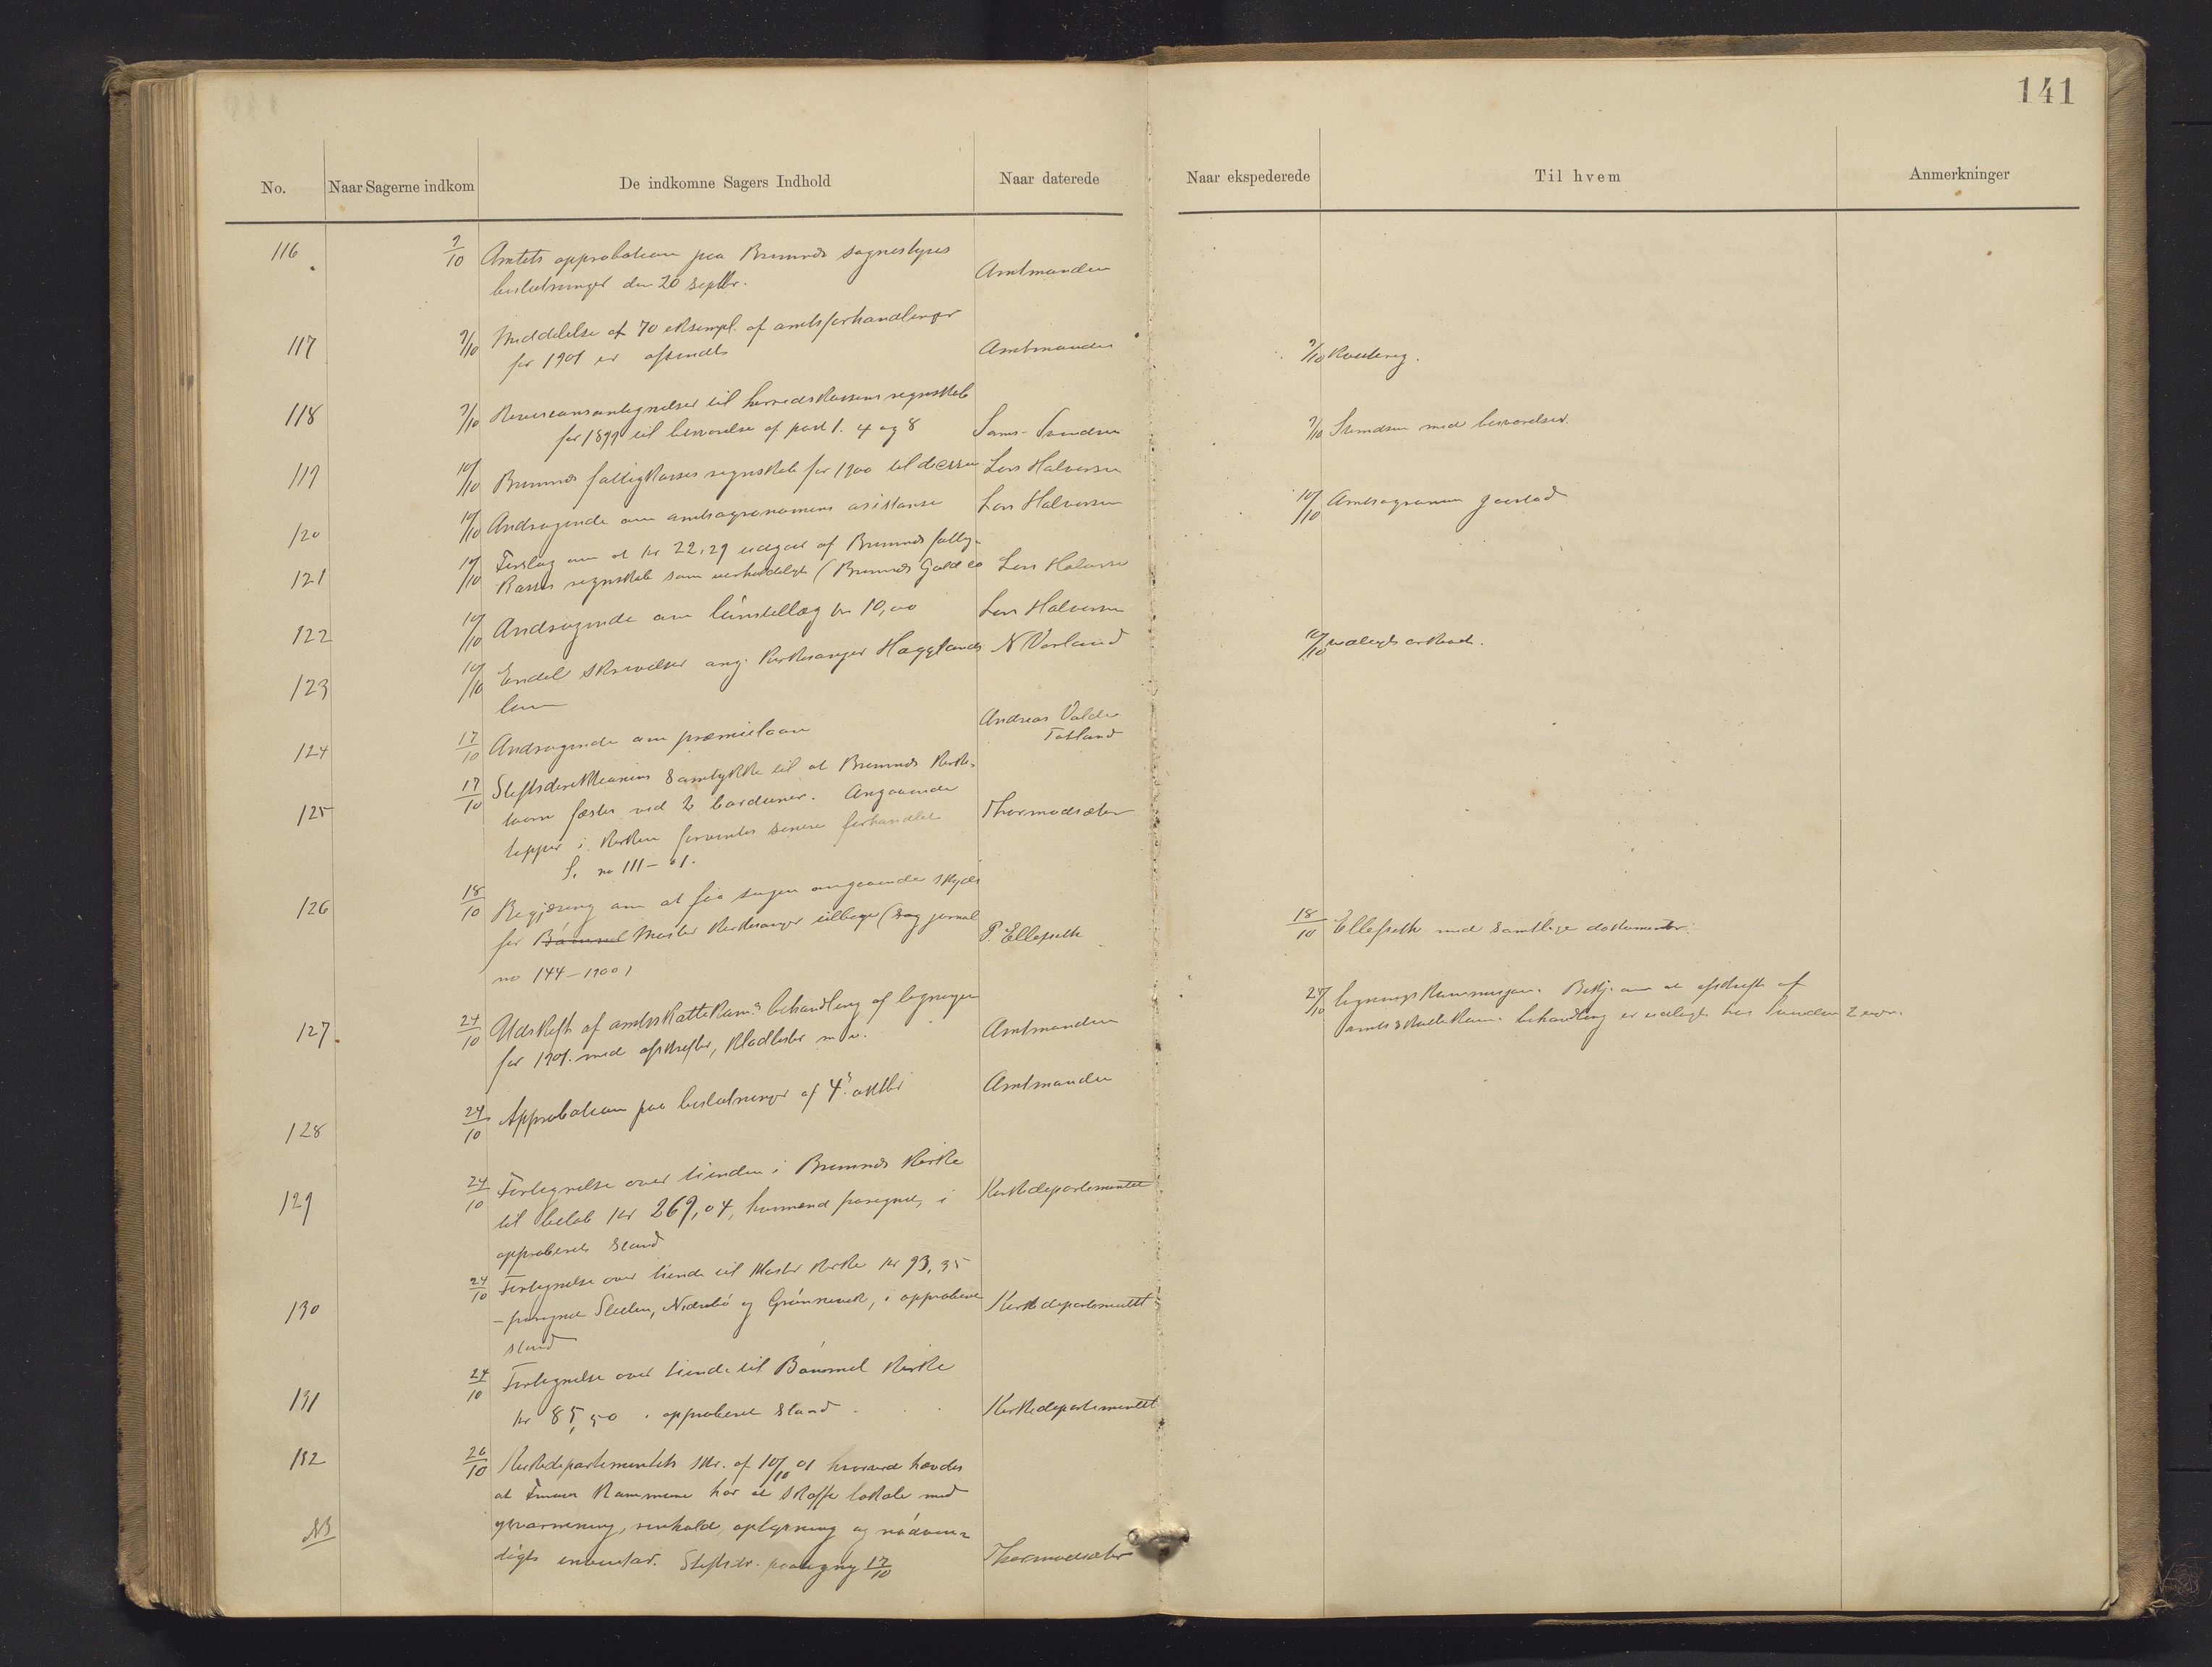 141
No. Naar Sagerne indkom De indkomne Sagers Indhold Naar daterede Naar ekspederede Til hvem Anmerkninger
116 9/10 Amtets approbation paa Bremnes sognestyres
beslutninger den 20 septbr. Amtmanden
117 9/10 Meddelelse af 70 eksempl. af amtsforhandlinger
for 1901 er afsendt Amtmanden 9/10
118 9/10 Revisionsantegnelser til herredskassens regnskab
for 1899 til besvarelse af post 1. 4 og 8 9/10 Svendsen med besvarelser.
119 10/10 Bremnes fattigkasses regnskab for 1900 til decision Lars Halvorsen
120 10/10 Andragende om amtsagronomens asistanse Lars Halvorsen 10/10 Amtsagronom Gaustad
121 10/10 Forslag om at kr 22,29 udgaar af Bremnes fattig-
kasses regnskab som uerholdeligt (Bremnes Gold Co Lars Halvorsen
122 10/10 Andragende om lønstillæg kr 10,00 Lars Halvorsen
123 10/10 Endel skrivelser ang. kirkesanger Hagglands N Vorland 10/10
løn
124 17/10 Andragende om præmielaan Andreas Valde
Totland
125 17/10 Stiftsdirektionens samtykke til at Bremnes kirke-
taarn fæstes ved 2 barduner. Angaaende
tepper i kirken forventes senere forhandlet Thormodsæter
S. no 111-01.
126 18/10 Begjæring om at faa sagen angaaende skyds
for Bømmel Moster kirkesanger tilbage (Sag jornal P. Ellefseth 18/10 Ellefseth med samtlige dokumenter.
no 144-1900)
127 24/10 Udskrift af amtsskattekom.s behandling af ligningen
for 1901. med afskrifter, kladlister m v. Amtmanden 24/10 ligningskommisjon. Bekj. om at afskrift af
amtsskattekom. behandling er udlagt hos
128 24/10 Approbation paa beslutninger af 4. oktbr Amtmanden
129 24/10 Fortegnelse over tienden i Bremnes kirke
til beløb kr 269,04, i Kirkedepartementet
approberet stand
130 24/10 Fortegnelse over tiende til Moster kirke kr 93,35
- paaregnet Sletten, Nidrebø og Grønnevik, i approberet Kirkedepartementet
stand
131 24/10 Fortegnelse over tiende til Bømmel kirke
kr 85,50 i approberet stand Kirkedepartementet
132 26/10 Kirkedepartementets skr. af 10/10 01 hvorved hævdes
at Finnaas kommune har at skaffe lokale med
opvarmning, renhold, oplysning og nødven-
NB digt inventar. Stiftsdr. paategng 17/10 Thormodsæter